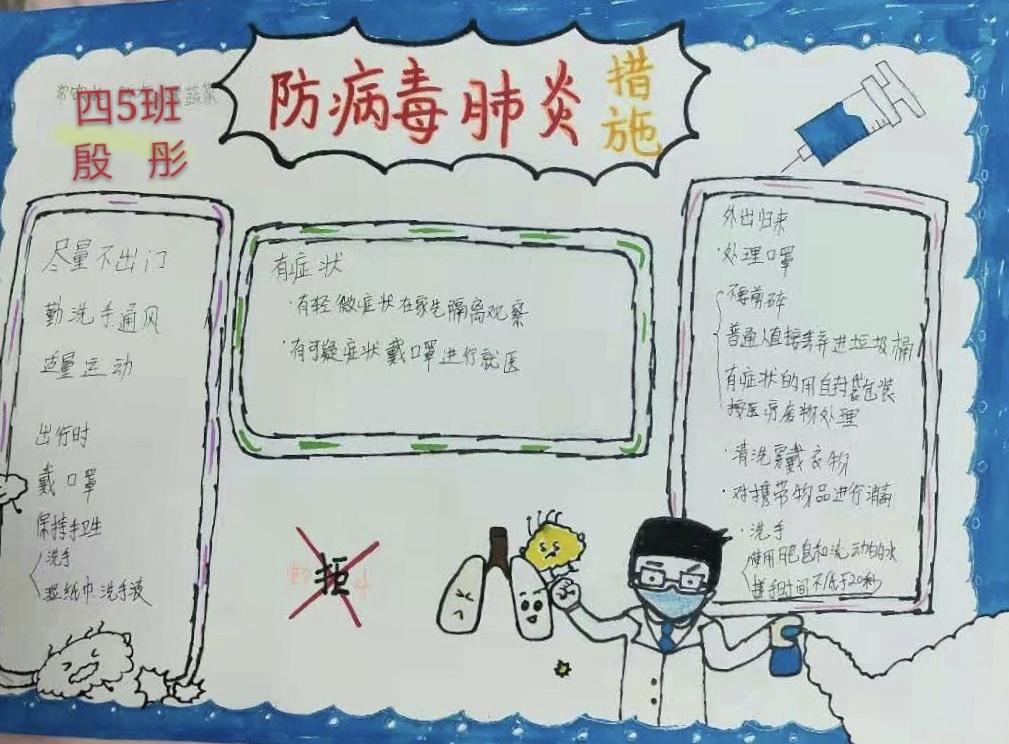 四5班
殷 彤
防病毒肺炎
措施
尽量不出门
勤洗手通风
适量运动
出行时
戴口罩
保持手卫生
洗手
湿纸巾洗手液
有症状
·有轻微症状在家先隔离观察
·有可疑症状戴口罩进行就医
拒
外出归来
·处理口罩
普通人直接丢弃进垃圾桶
有症状的用自封袋包装
按医疗废物处理
·清洗穿戴衣物
·对携带物品进行消毒
·洗手
使用肥皂和流动的水
搓手时间不低于20秒